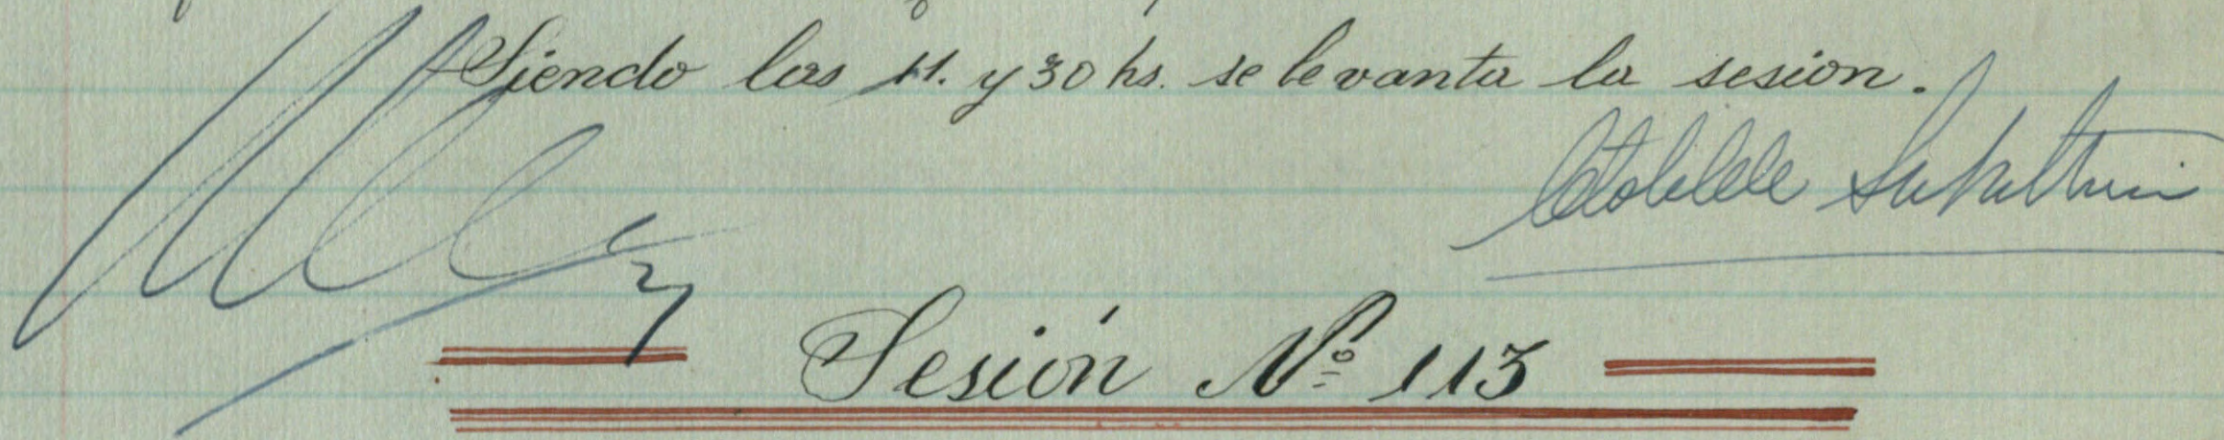 Siendo las 11. y 30 hs. se levanta la sesion.
Sesión Nº 113